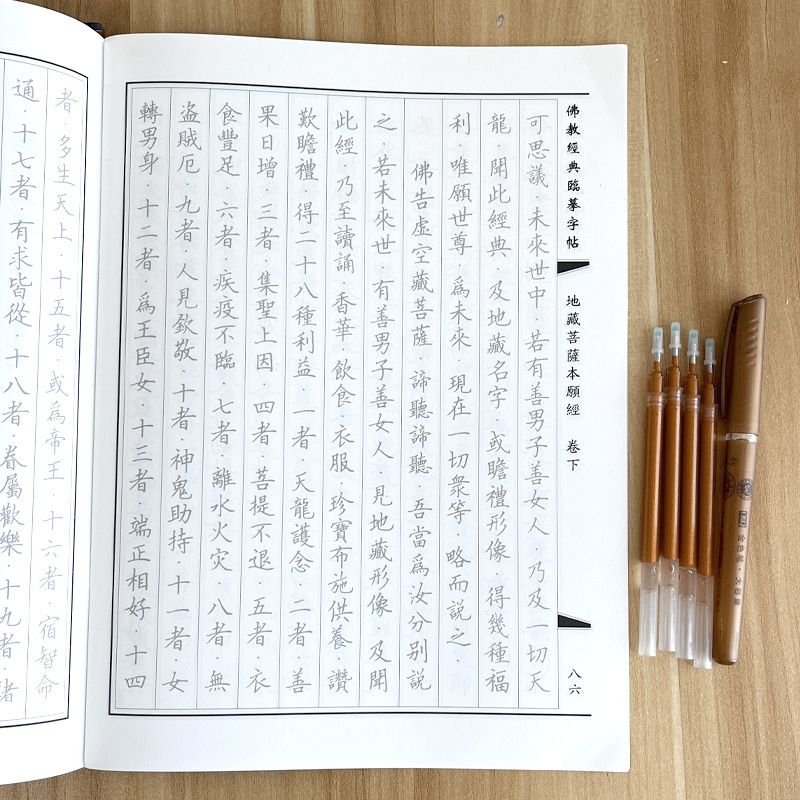 佛教經典臨摹字帖
地藏菩薩本願經 卷下
八六
可思議．未來世中．若有善男子善女人．乃及一切天
龍．聞此經典．及地藏名字．或瞻禮形像．得幾種福
利．唯願世尊．為未來．現在一切眾等．略而説之．
佛告虛空藏菩薩．諦聽諦聽．吾當為汝分別説
之．若未來世．有善男子善女人．見地藏形像．及聞
此經．乃至讀誦．香華．飲食．衣服．珍寶布施供養．讚
歎瞻禮．得二十八種利益．一者．天龍護念．二者．善
果日增．三者．集聖上因．四者．菩提不退．五者．衣
食豐足．六者．疾疫不臨．七者．離水火灾．八者．無
盜賊厄．九者．人見欽敬．十者．神鬼助持．十一者．女
轉男身．十二者．為王臣女．十三者．端正相好．十四
者．多生天上．十五者．或為帝王．十六者．宿智命
通．十七者．有求皆從．十八者．眷屬歡樂．十九者．諸
金色箔·大容量